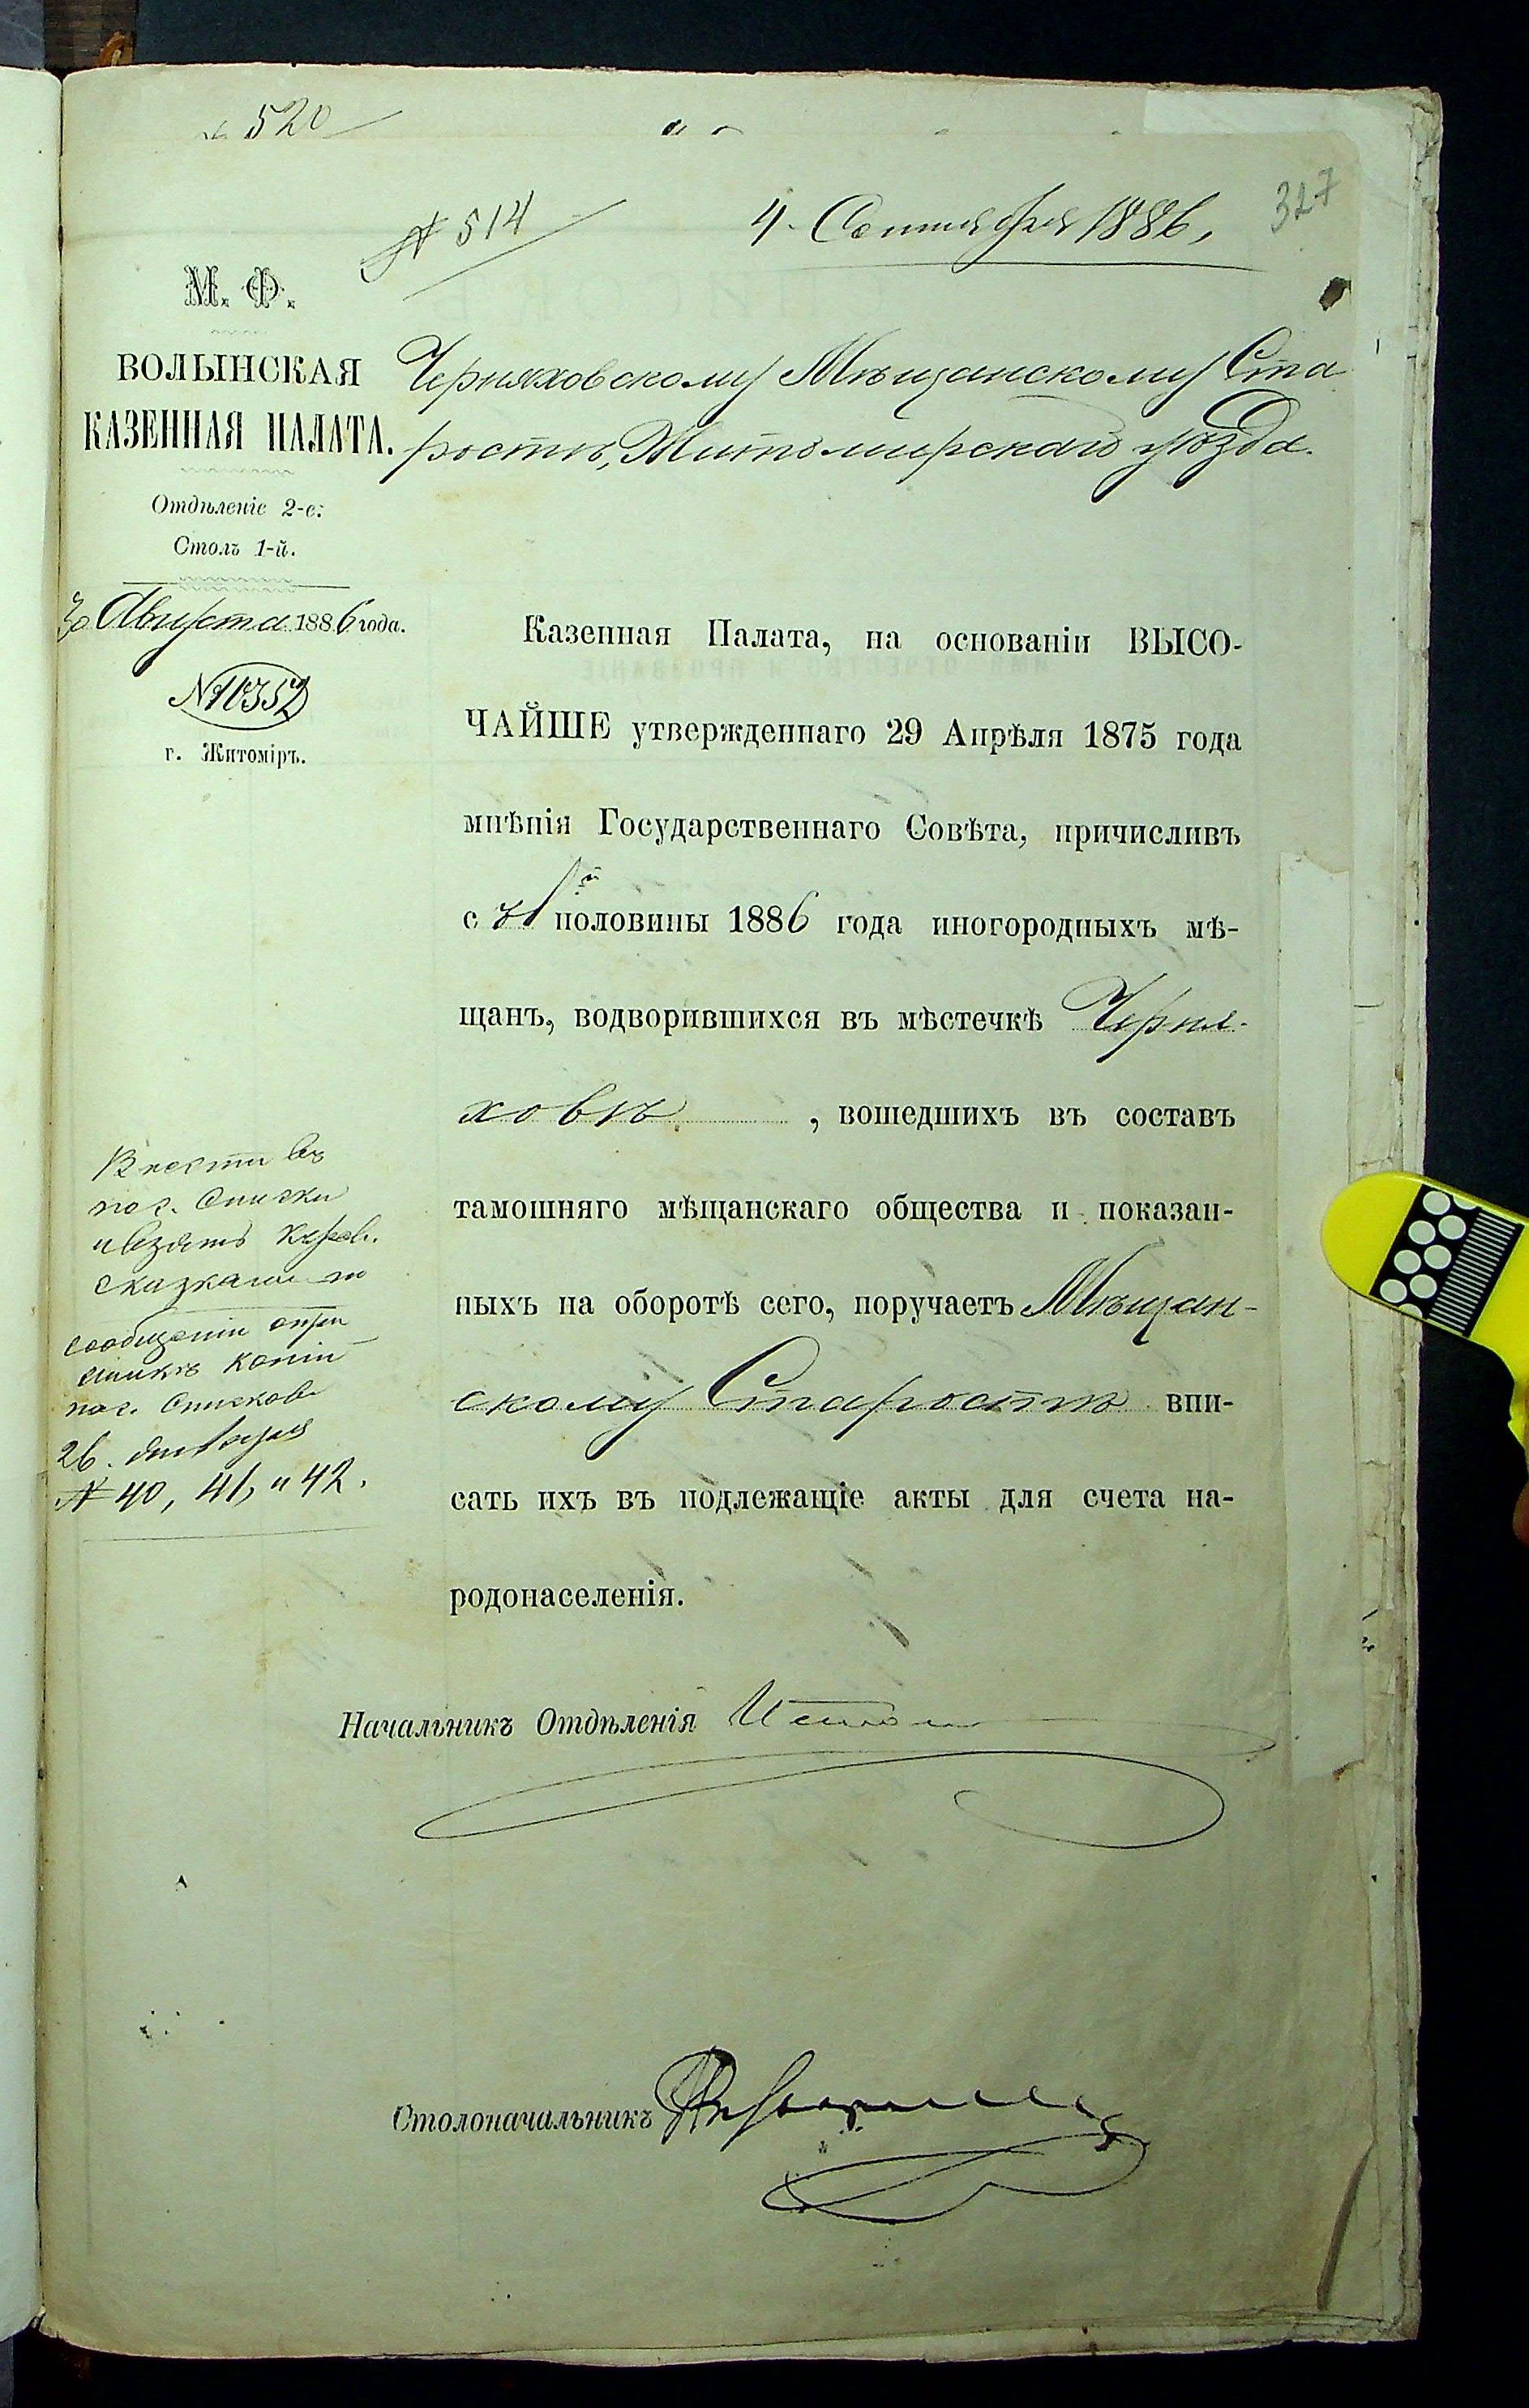 № 520
327
№ 514
4. Сентября 1886,
М. Ф.
ВОЛЫНСКАЯ
КАЗЕННАЯ ПАЛАТА.
Отдѣленіе 2-е.
Столъ 1-й.
30 Августа 1886 года.
№ 10352
г. Житоміръ.
Черняховскому Мѣщанскому Ста
ростѣ, Житомирскаго уѣзда.
Казенная Палата, на основаніи ВЫСО-
ЧАЙШЕ утвержденнаго 29 Апрѣля 1875 года
мнѣнія Государственнаго Совѣта, причисливъ
съ 1й половины 1886 года иногородныхъ мѣ-
щанъ, водворившихся въ мѣстечкѣ Черня-
ховѣ, вошедшихъ въ составъ
тамошняго мѣщанскаго общества и показан-
ныхъ на оборотѣ сего, поручаетъ Мѣщан-
скому Старостѣ впи-
сать ихъ въ подлежащіе акты для счета на-
родонаселенія.
Внести въ
пос. Списки
и взять
сказками по
сообщеніи
копіи
пос. Списковъ
26.
№ 40, 41, и 42.
Начальникъ Отдѣленія
Столоначальникъ